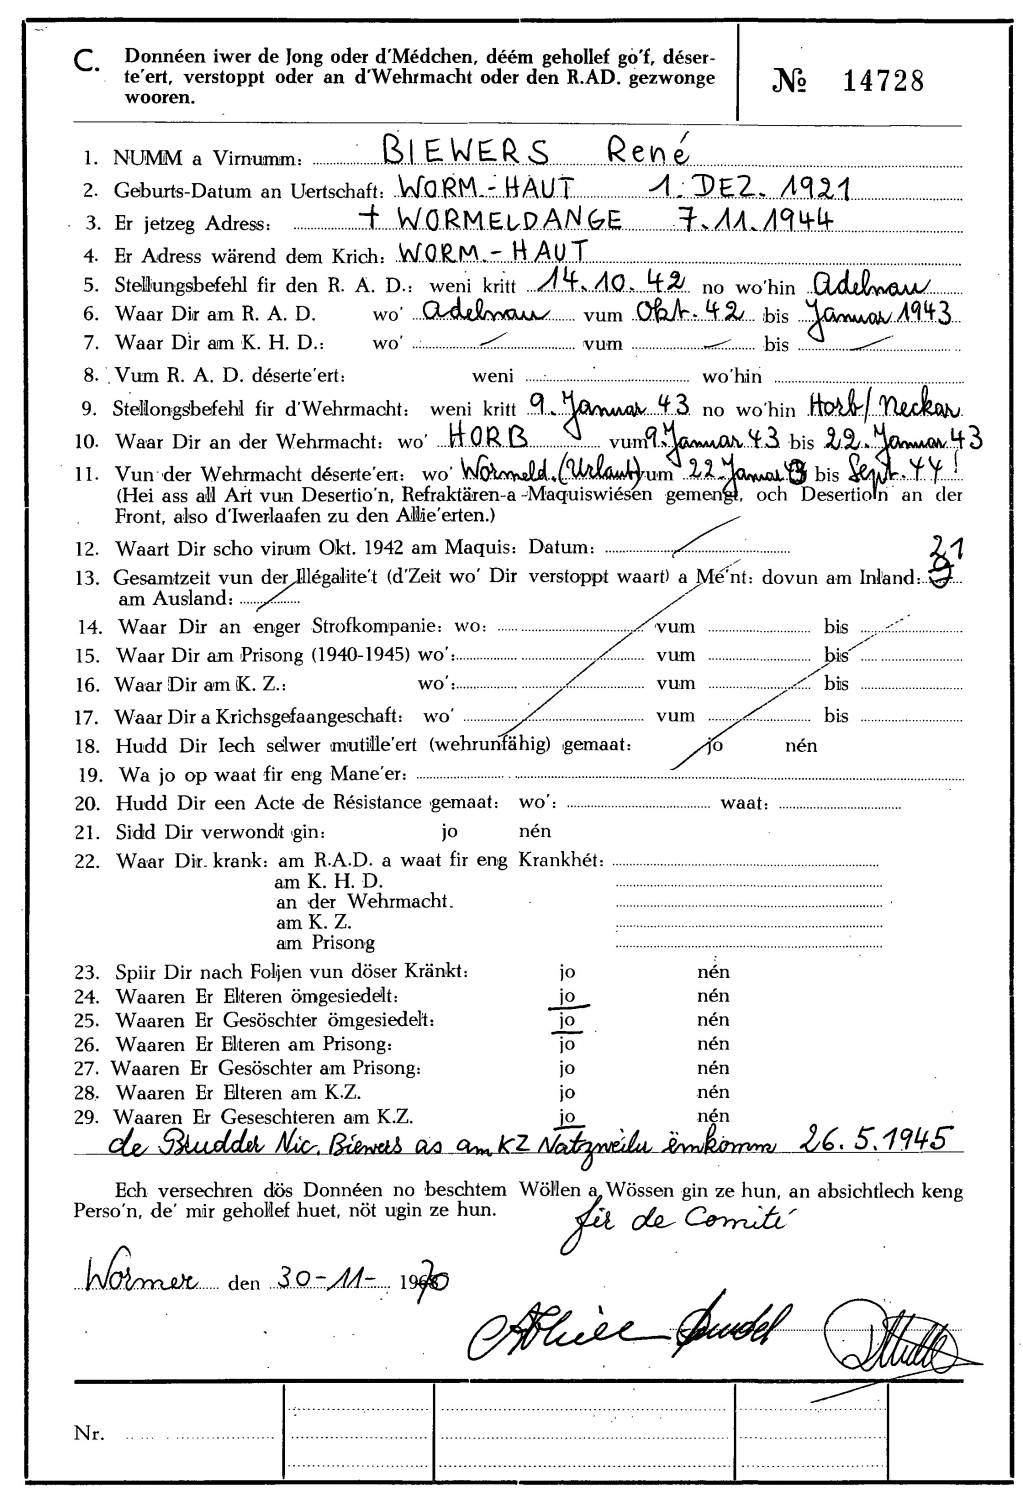 C. Donnéen iwer de Jong oder d'Médchen, déém gehollef go'f, déser-
te'ert, verstoppt oder an d'Wehrmacht oder den R.AD. gezwonge
wooren.
№ 14728
1. NUMM a Virnumm: BIEWERS René
2. Geburts-Datum an Uertschaft: WORM.-HAUT 1. DEZ. 1921
3. Er jetzeg Adress: + WORMELDANGE 7.11.1944
4. Er Adress wärend dem Krich: WORM.-HAUT
5. Stellungsbefehl fir den R. A. D.: weni kritt 14.10.42 no wo'hin Adelnau
6. Waar Dir am R. A. D. wo' Adelnau vum Okt. 42 bis Januar 1943
7. Waar Dir am K. H. D.: wo' vum bis
8. Vum R. A. D. déserte'ert: weni wo'hin
9. Stellongsbefehl fir d'Wehrmacht: weni kritt 9. Januar 43 no wo'hin Horb/Neckar
10. Waar Dir an der Wehrmacht: wo' HORB vum 9. Januar 43 bis 22. Januar 43
11. Vun der Wehrmacht déserte'ert: wo' Wormeld. (Urlaub) vum 22 Januar 43 bis Sept. 44!
(Hei ass all Art vun Desertio'n, Refraktären-a -Maquiswiésen gemengt, och Desertio'n an der
Front, also d'Iwerlaafen zu den Allie'erten.)
12. Waart Dir scho virum Okt. 1942 am Maquis: Datum:
13. Gesamtzeit vun der Illégalite't (d'Zeit wo' Dir verstoppt waart) a Mé'nt: dovun am Inland: 21
am Ausland:
14. Waar Dir an enger Strofkompanie: wo: vum bis
15. Waar Dir am Prisong (1940-1945) wo': vum bis
16. Waar Dir am K. Z.: wo': vum bis
17. Waar Dir a Krichsgefaangeschaft: wo' vum bis
18. Hudd Dir Iech selwer mutille'ert (wehrunfähig) gemaat: jo nén
19. Wa jo op waat fir eng Mane'er:
20. Hudd Dir een Acte de Résistance gemaat: wo': waat:
21. Sidd Dir verwondt gin: jo nén
22. Waar Dir krank: am R.A.D. a waat fir eng Krankhét:
am K. H. D.
an der Wehrmacht.
am K. Z.
am Prisong
23. Spiir Dir nach Foljen vun döser Kränkt: jo nén
24. Waaren Er Elteren ömgesiedelt: jo nén
25. Waaren Er Gesöschter ömgesiedelt: jo nén
26. Waaren Er Elteren am Prisong: jo nén
27. Waaren Er Gesöschter am Prisong: jo nén
28. Waaren Er Elteren am K.Z. jo nén
29. Waaren Er Geseschteren am K.Z. jo nén
de Brudder Nic. Biewers as am KZ Natzweiler ëmkomm 26.5.1945
Ech versechren dös Donnéen no beschtem Wöllen a Wössen gin ze hun, an absichtlech keng
Perso'n, de' mir gehollef huet, nöt ugin ze hun.
fir de Comité
Wormer den 30-11- 1970
Nr.